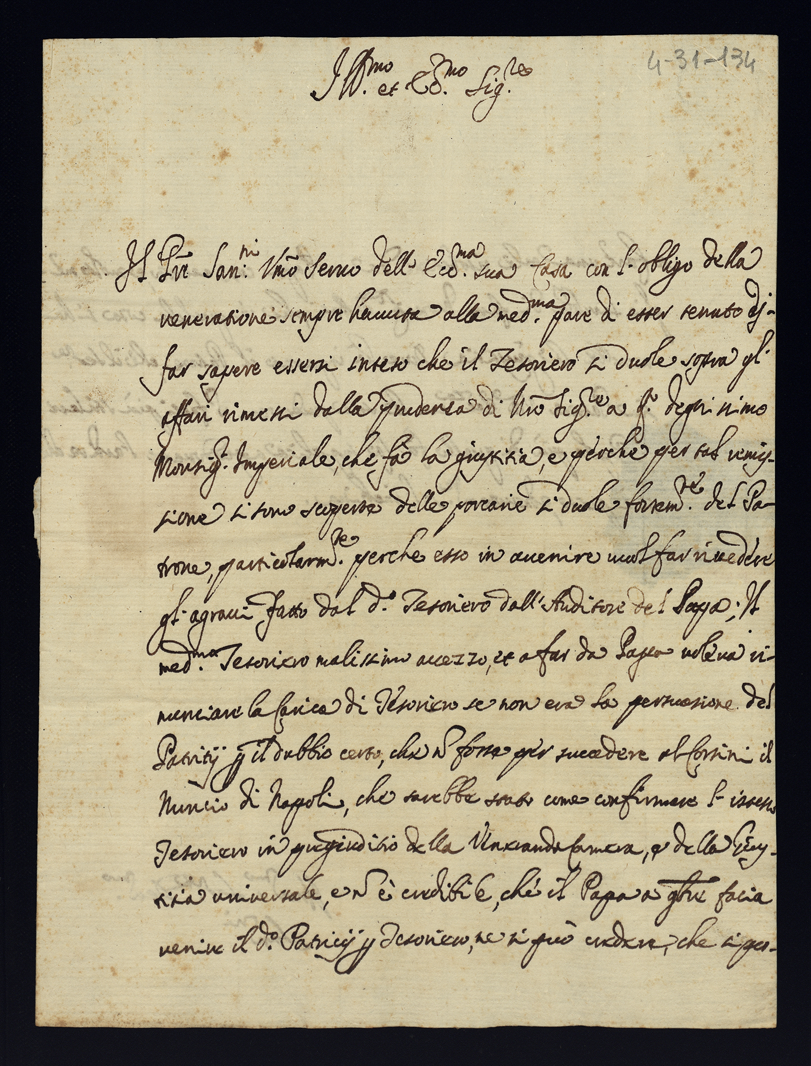 4-31-134
Ill.mo et Ecc.mo Sig.re
Il Pñre San.ni Umõ Seruo dell' Ecc.ma sua Casa con l'obligo della
ueneratione sempre hauuta alla med.ma pare di esser tenuto di
far sapere essersi inteso che il Tesoriero si duole sopra gl'
affari rimessi dalla prudenza di Nrõ Sig.re a degnissimo
Monsig.r Imperiale, che fà la giustitia, e perche per tal remis-
sione si sono scoperte delle porcarie si duole fortem.te del Pa-
trone, particolarm.te perche esso in auuenire uuol far riuedere
gl'agraui fatto dal d.o Tesoriero dall'Auditore del Papa; Il
med.mo Tesoriero malissimo auezzo, et a far da Papa uoleua ri-
nunciare la Carica di Tesoriero se non era la persuasione del
Patritij e il dubbio certo, che ñ fosse per succedere al Corsini il
Nuncio di Napoli, che sarebbe stato come confirmare l'istesso
Tesoriero in pregiuditio della Reueranda Camera, e della Gius-
titia uniuersale, e ñ è credibile, ché il Papa a facia
uenire il d.o Patricij p Tesoriero, ne si può credere, che si per-